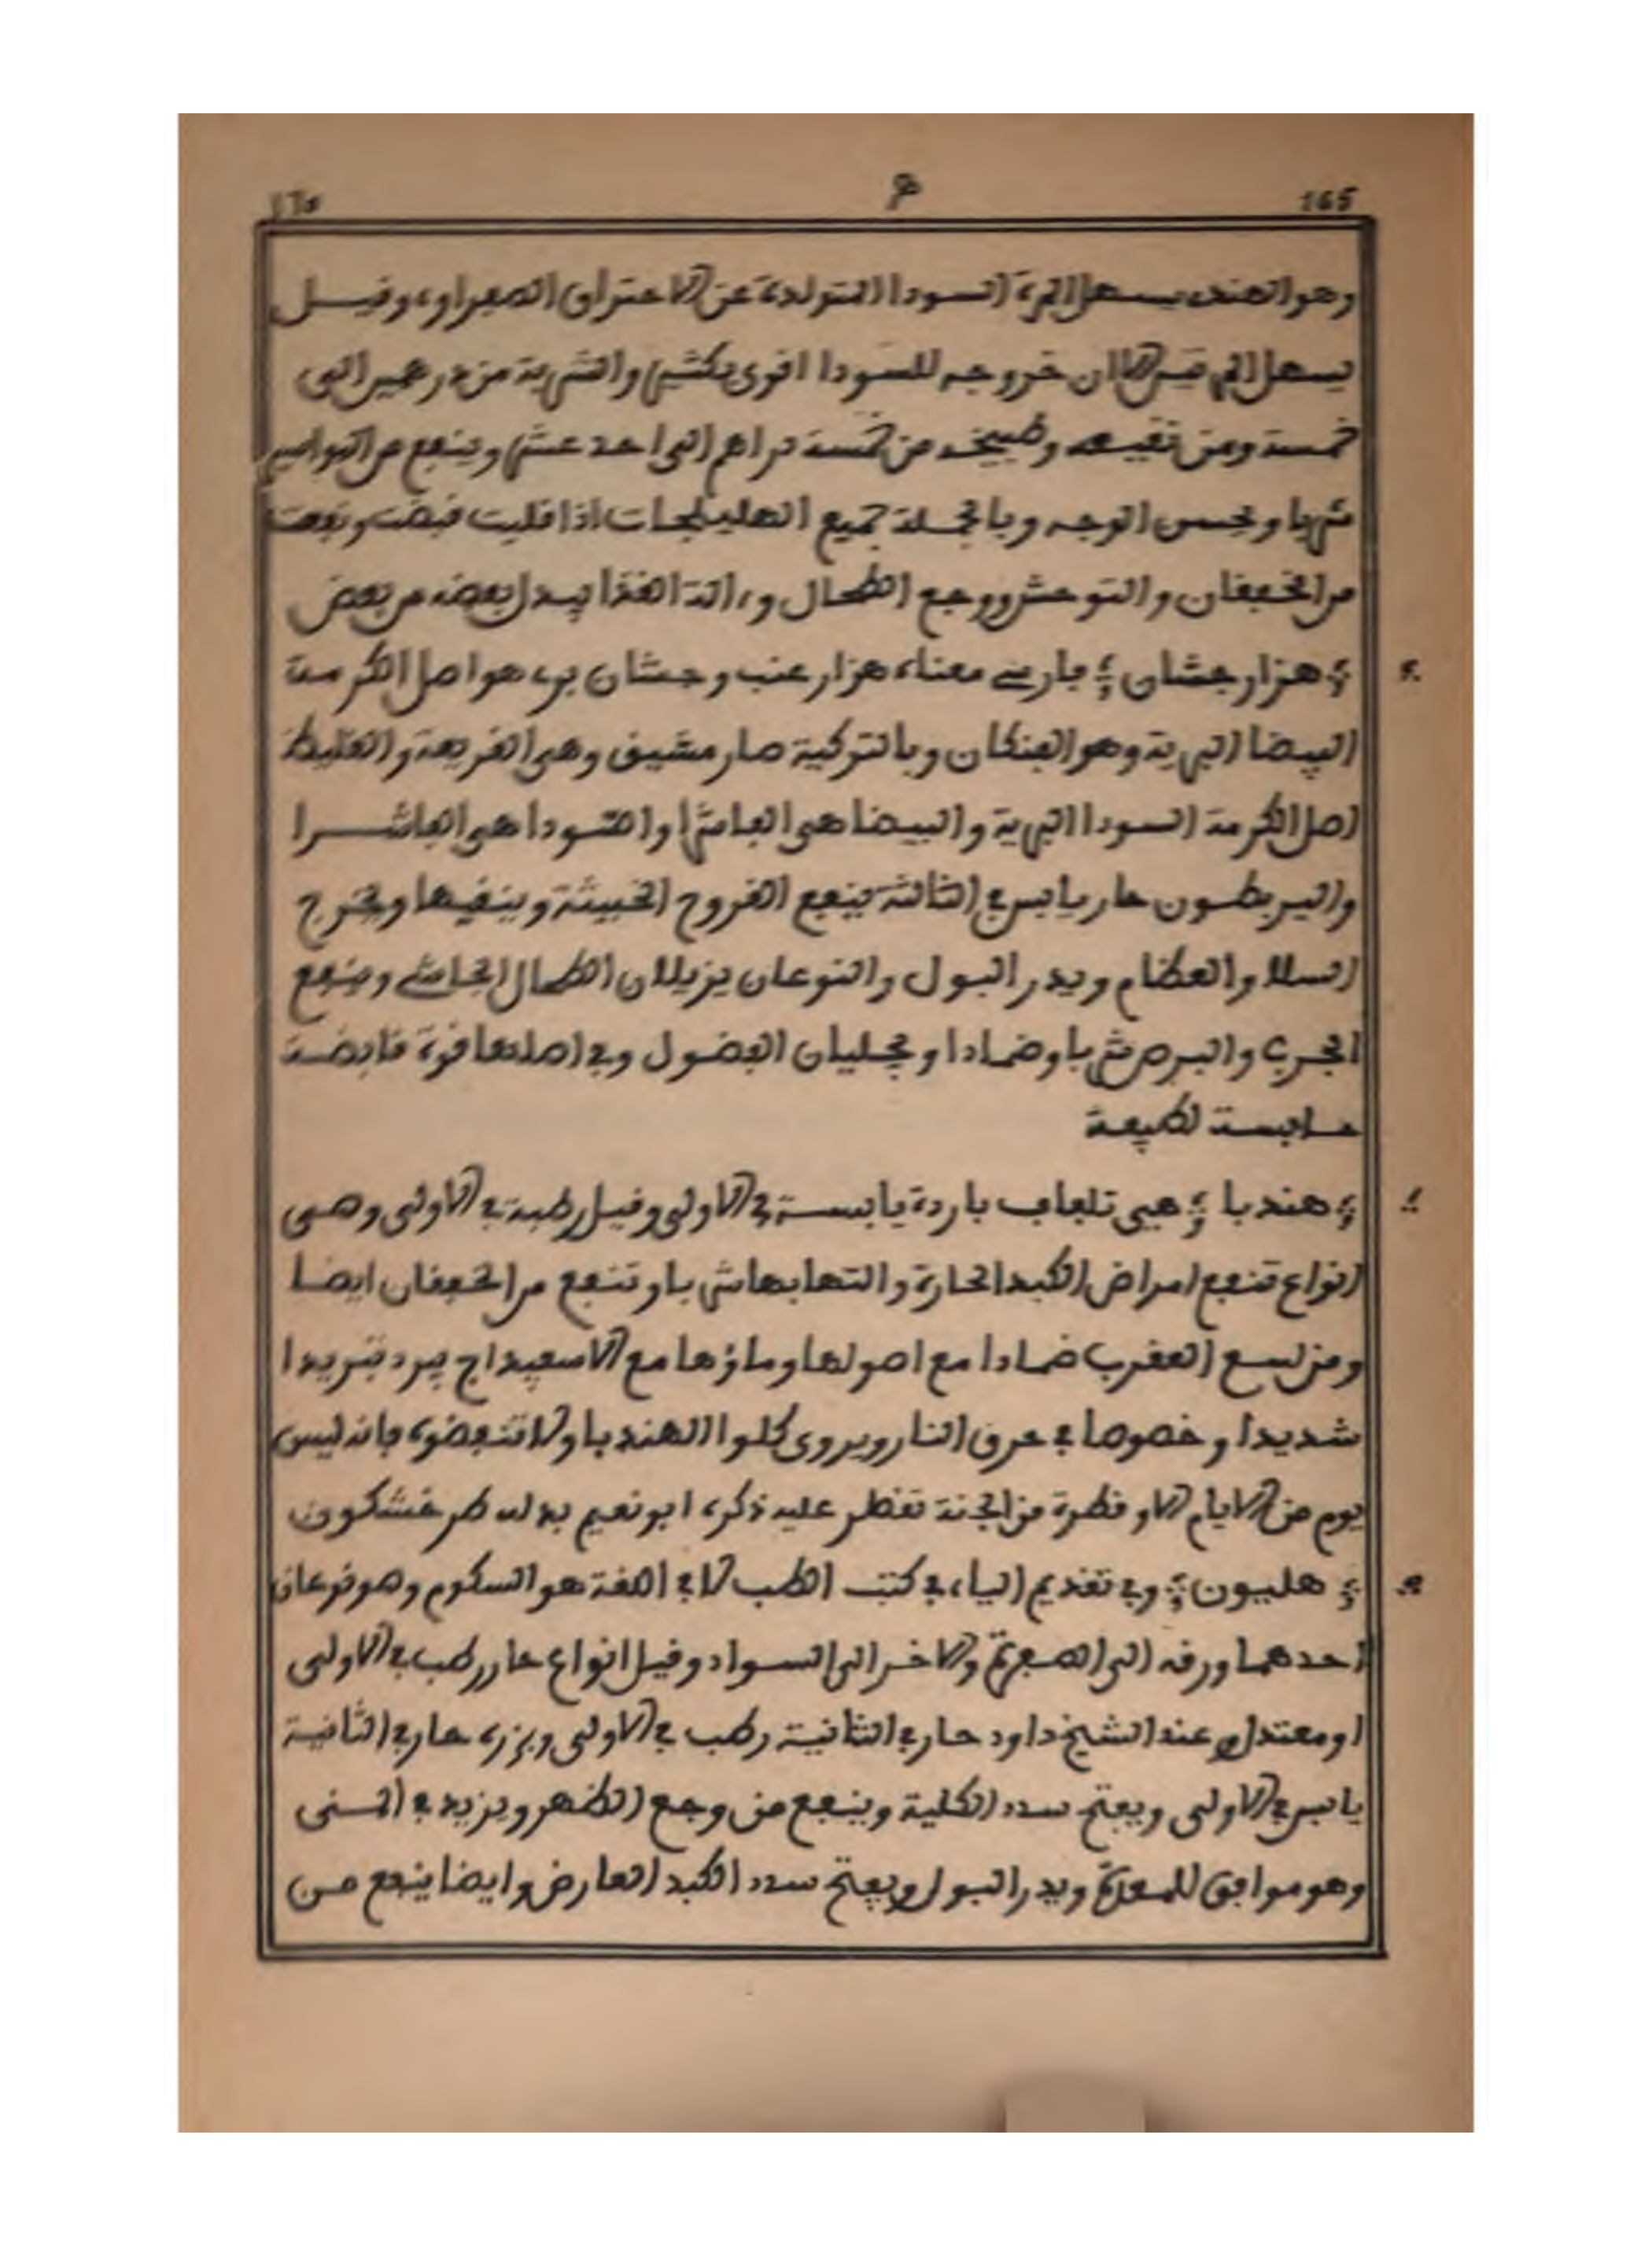 165 ١٦٥
وهو الهندي يسهل المرة السودا المتولدة عن الاحتراق الصفراوي وقيل
يسهل المرتين الا ان خروجه للسودا اقوى بكثير والشربة من درهمين الى
خمسة ومن نقيعه وطبيخه من خمسة دراهم الى احد عشر وينفع من البواسير
شربا ويحسن الوجه وبالجملة جميع الهليلجات اذا قليت قبضت ونفعت
من الخفقان والتوحش ووجع الطحال وءالة الغذا يبدل بعضه من بعض
هزارجشان فارسي معناه هزار عنب وجشان بري هو اصل الكرمة
البيضا البرية وهو وبالتركية صارمشيق وهي القريعة والغليظ
اصل الكرمة السودا البرية والبيضا هي الفاشرا والسودا هي الفاشرا
والبربطون حار يابس في الثالثة ينفع القروح الخبيثة وينقيها ويخرج
السلا والعظام ويدر البول والنوعان يزيلان الطحال الجاسي وينفع
الجرب والبرص شربا وضمادا ويجليان الفضول وفي اصلها قوة قابضة
حابسة لطبيعة
هندبا هي تلفاف باردة يابسة في الاولى وقيل رطبة في الاولى وهي
انواع تنفع امراض الكبد الحارة والتهابها شربا وتنفع من الخفقان ايضا
ومن لسع العقرب ضمادا مع اصولها وماؤها مع الاسفيداج يبرد تبريدا
شديدا وخصوصا في حرق النار ويروى كلوا الهندبا ولا تنفضوه فانه ليس
يوم من الايام الا وقطرة من الجنة تقطر عليه ذكره ابو نعيم بدله طرخشكون
هليون وفي تقديم الياء في كتب الطب لا في اللغة هو السكوم وهو نوعان
احدهما ورقه الى الصفرة والاخر الى السواد وقيل انواع حار رطب في الاولى
او معتدل وعند الشيخ داود حار في الثانية رطب في الاولى وبزره حار في الثانية
يابس في الاولى ويفتح سدد الكلية وينفع من وجع الظهر ويزيد في المنى
وهو موافق للمعدة ويدر البول ويفتح سدد الكبد العارض وايضا ينفع من